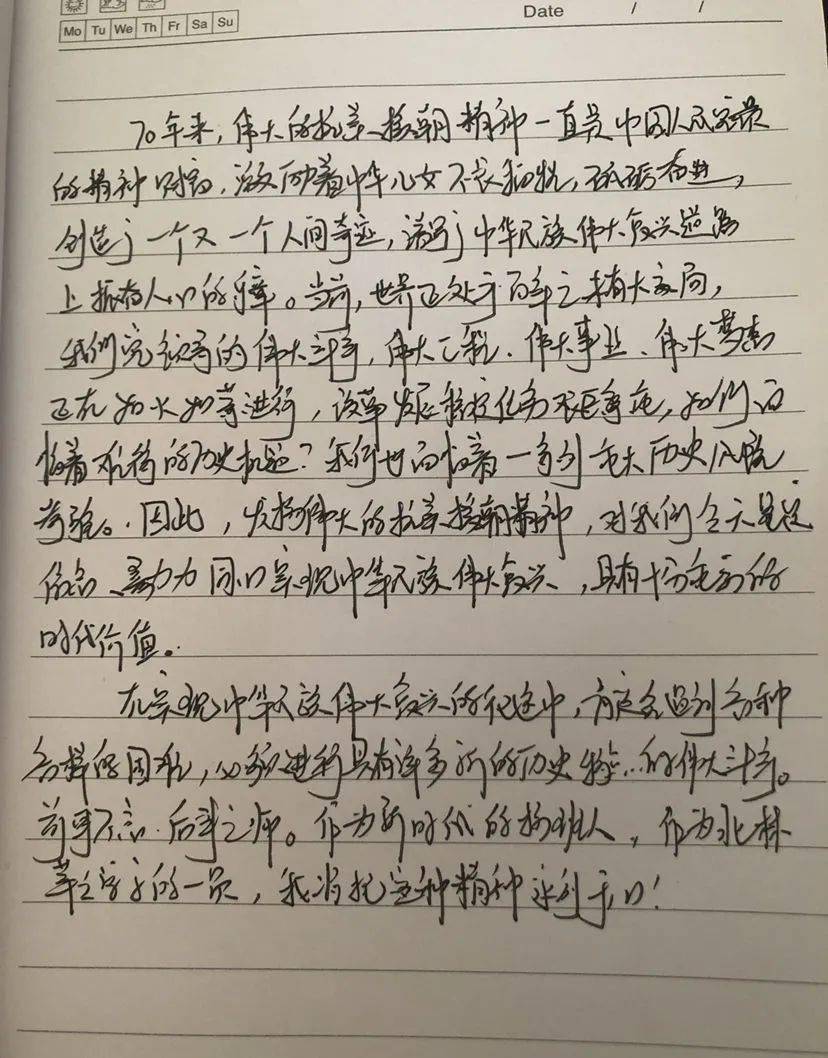 Date / /
Mo Tu We Th Fr Sa Su
70年来，伟大的抗美援朝精神一直是中国人民宝贵
的精神财富，激励着中华儿女不畏艰险，砥砺奋进，
创造了一个又一个人间奇迹，谱写了中华民族伟大复兴道路
上振奋人心的乐章。当前，世界正处于百年之未有大变局，
我们党领导的伟大斗争，伟大工程、伟大事业、伟大梦想
正在如火如荼进行，改革发展稳定任务艰巨繁重，我们面
临着难得的历史机遇？我们也面临着一系列重大历史风险
考验。因此，发扬伟大的抗美援朝精神，对我们今天
努力 同心实现中华民族伟大复兴，具有十分重要的
时代价值。
在实现中华民族伟大复兴的征途中，肯定会遇到各种
各样的困难，必须进行具有许多新的历史特点的伟大斗争。
前事不忘·后事之师。作为新时代的接班人，作为北林
学子的一员，我将把这种精神永刻于心！